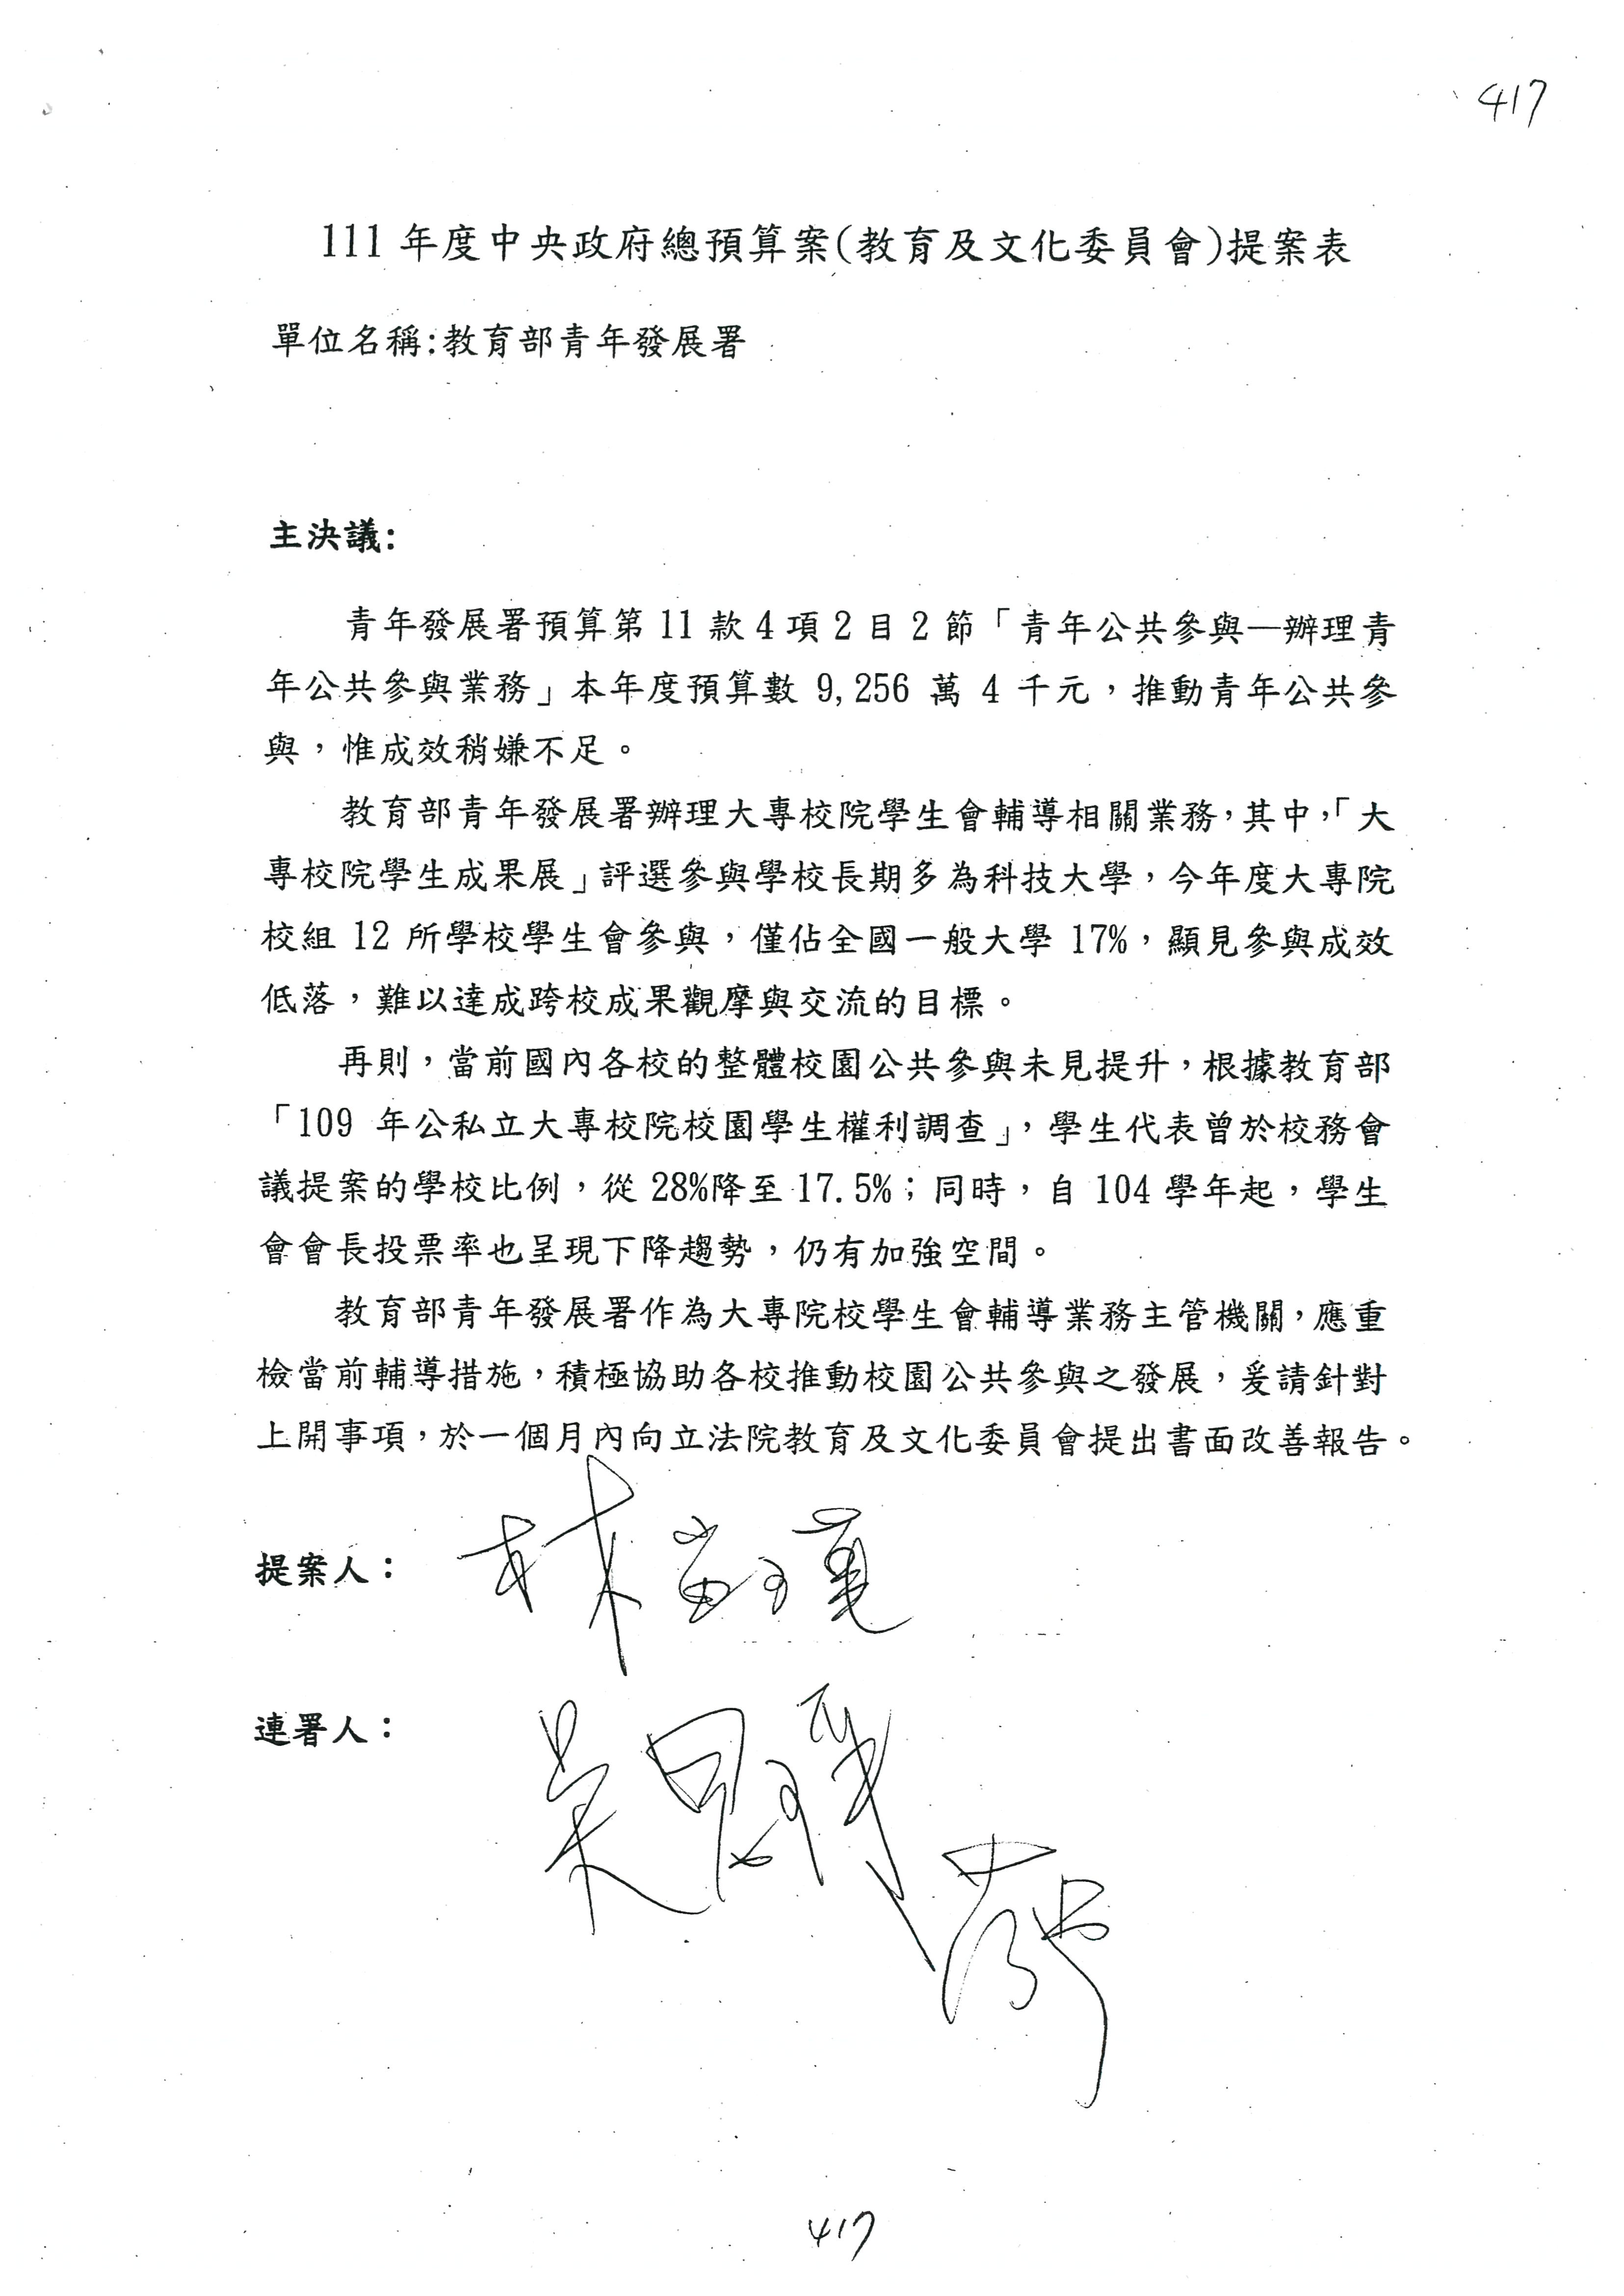 417
111 年度中央政府總預算案(教育及文化委員會)提案表
單位名稱:教育部青年發展署
主決議:
青年發展署預算第 11 款 4 項 2 目 2 節「青年公共參與—辦理青
年公共參與業務」本年度預算數 9,256 萬 4 千元,推動青年公共參
與,惟成效稍嫌不足。
教育部青年發展署辦理大專校院學生會輔導相關業務,其中,「大
專校院學生成果展」評選參與學校長期多為科技大學,今年度大專院
校組 12 所學校學生會參與,僅佔全國一般大學 17%,顯見參與成效
低落,難以達成跨校成果觀摩與交流的目標。
再則,當前國內各校的整體校園公共參與未見提升,根據教育部
「109 年公私立大專校院校園學生權利調查」,學生代表曾於校務會
議提案的學校比例,從 28%降至 17.5%;同時,自 104 學年起,學生
會會長投票率也呈現下降趨勢,仍有加強空間。
教育部青年發展署作為大專院校學生會輔導業務主管機關,應重
檢當前輔導措施,積極協助各校推動校園公共參與之發展,爰請針對
上開事項,於一個月內向立法院教育及文化委員會提出書面改善報告。
提案人:
連署人:
417